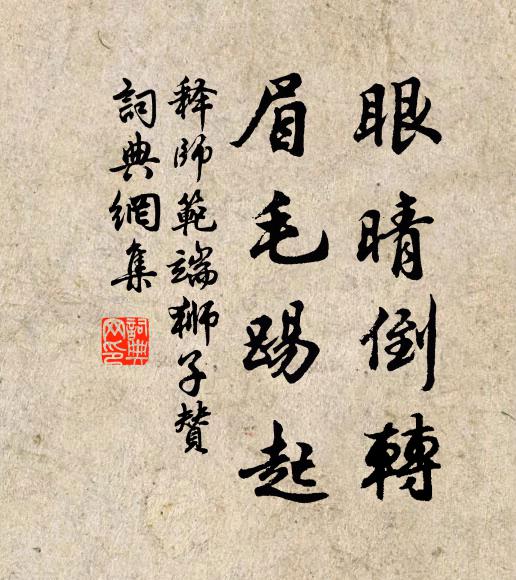 眼晴倒轉
眉毛踢起
释師範端獅子贊
詞典網集
詞典網印